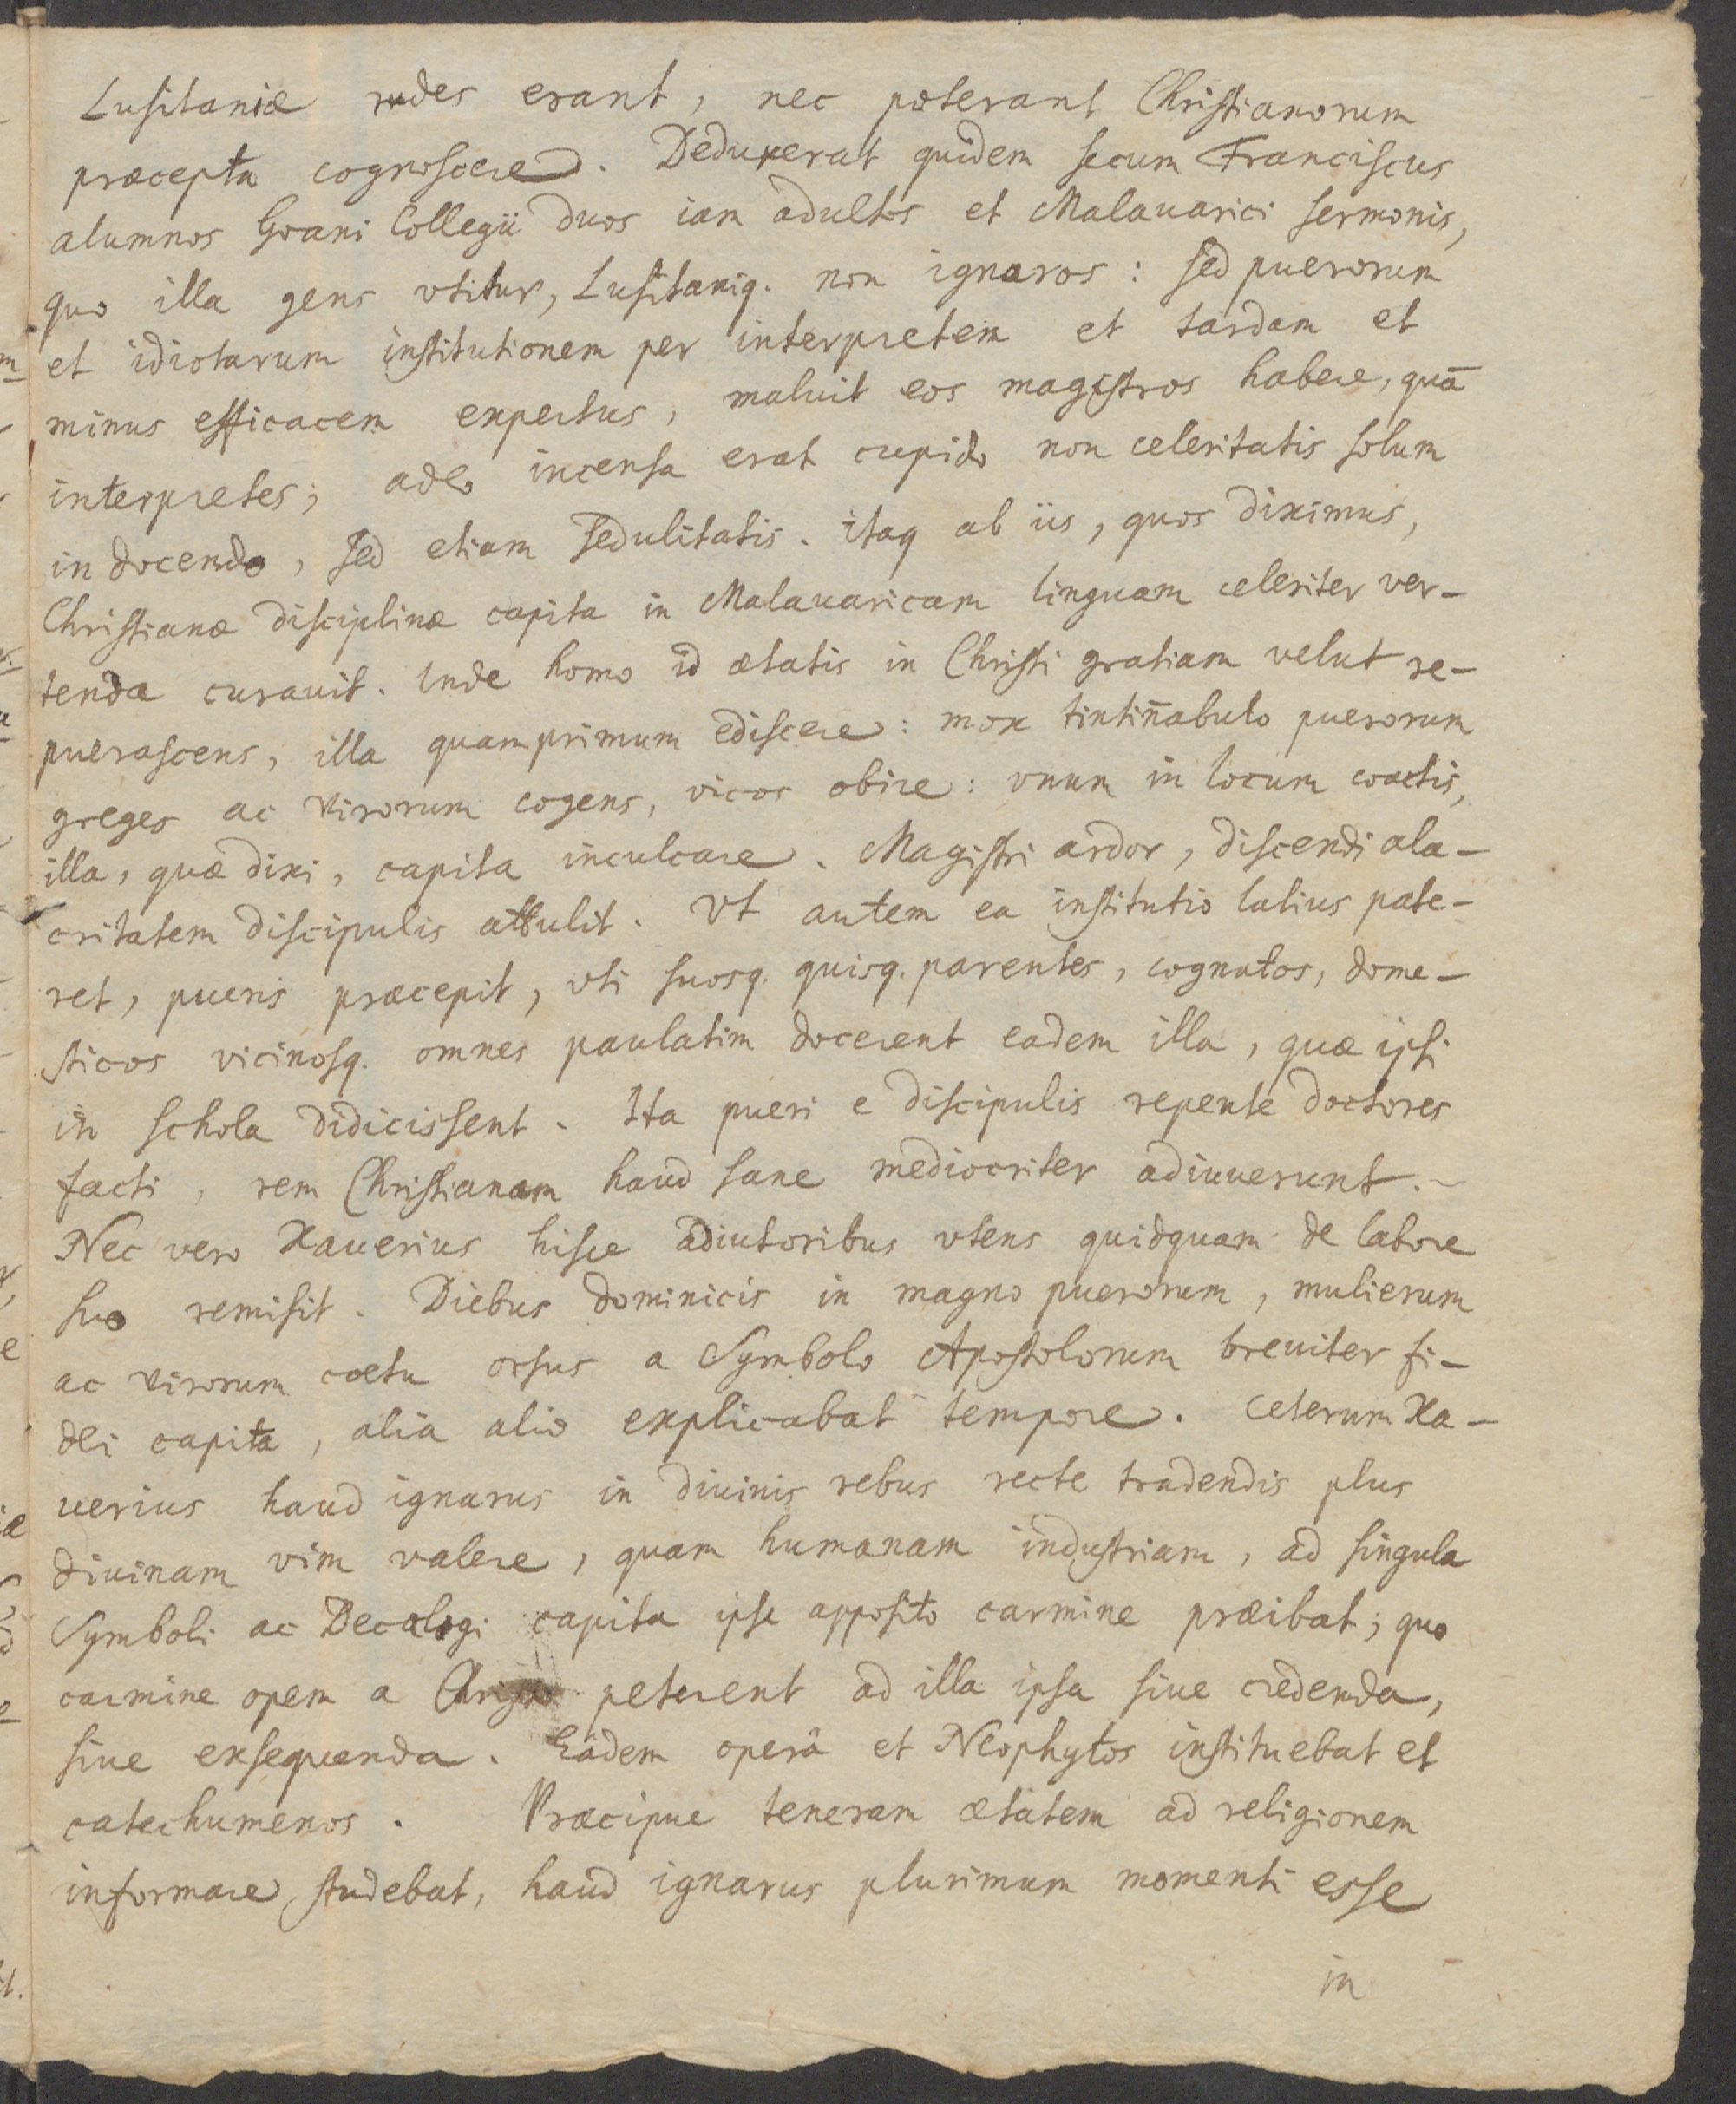 Lusitaniæ rudes erant, nec poterant Christianorum
præcepta cognoscere. Deduxerat quidem secum Franciscus
alumnos Goani Collegii duos iam adultos et Malauarici sermonis,
quo illa gens vtitur, Lusitaniq. non ignaros: sed puerorum
et idiotarum institutionem per interpretem et tardam et
minus efficacem expertus, maluit eos magistros habere, quā
interpretes; adeo incensa erat cupido non celeritatis solum
in docendo, sed etiam sedulitatis. itaq ab iis, quos diximus,
Christianæ disciplinæ capita in Malauaricam linguam celeriter ver-
tenda curauit. Inde homo id ætatis in Christi gratiam velut re-
puerascens, illa quamprimum ediscere: mox tintiñabulo puerorum
greges ac virorum cogens, vicos obire: vnum in locum coactis,
illa, quæ dixi, capita inculcare. Magistri ardor, discendi ala-
critatem discipulis attulit. Vt autem ea institutio latius pate-
ret, pueris præcepit, vti suosq. quisq. parentes, cognatos, dome-
sticos vicinosq. omnes paulatim docerent eadem illa, quæ ipsi
in schola didicissent. Ita pueri e discipulis repente doctores
facti, rem Christianam haud sane mediocriter adiuuerunt.~
Nec vero Xauerius hisce adiutoribus vtens quidquam de labore
suo remisit. Diebus dominicis in magno puerorum, mulierum
ac virorum cœtu orsus a Symbolo Apostolorum breuiter fi-
dei capita, alia alio explicabat tempore. Ceterum Xa-
uerius haud ignarus in diuinis rebus recte tradendis plus
diuinam vim valere, quam humanam industriam, ad singula
Symboli ac Decalogi capita ipse apposito carmine præibat; quo
carmine opem a Christo peterent ad illa ipsa siue credenda,
siue exsequenda. Eâdem operâ et Neophytos instituebat et
catechumenos. Præcipue teneram ætatem ad religionem
informare studebat, haud ignarus plurimum momenti esse
in